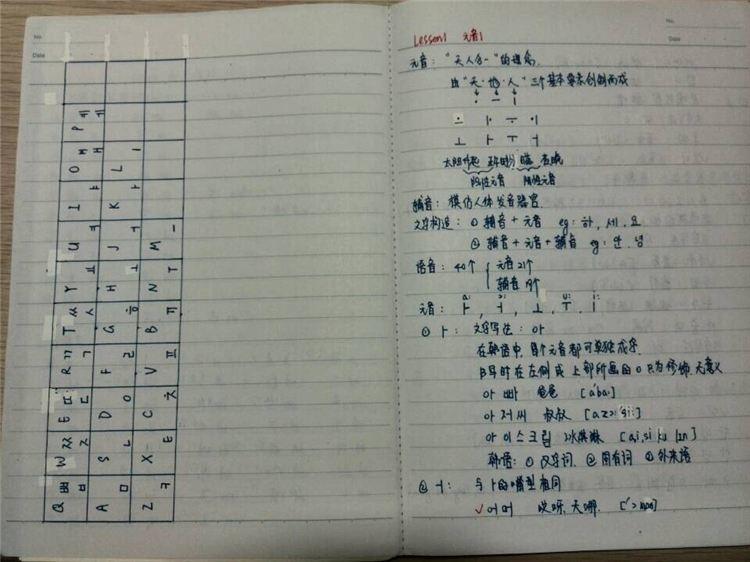 No.
Date
Q ㅃ ㅂ W ㅉ ㅈ E ㄸ ㄷ R ㄲ ㄱ T ㅆ ㅅ Y ㅛ U ㅕ I ㅑ O ㅒ ㅐ P ㅖ ㅔ
A ㅁ S ㄴ D ㅇ F ㄹ G ㅎ H ㅗ J ㅓ K ㅏ L ㅣ
Z ㅋ X ㅌ C ㅊ V ㅍ B ㅠ N ㅜ M ㅡ
No.
Date
Lesson1 元音1
元音: "天人合一"的理念
由"天·地·人"三个基本要素创制而成
· ー ㅣ
ㅗ ㅏ ㅜ ㅓ
太阳升起
阳性元音 阴性元音
辅音: 模仿人体发音器官
文字构造: ① 辅音 + 元音 eg: 하, 세, 요
② 辅音 + 元音 + 辅音 eg: 안, 녕
语音: 40个 元音 21个
辅音 19个
元音: ㅏ, ㅓ, ㅗ, ㅜ, ㅣ
① ㅏ: 文字写法: 아
在韩语中, 每个元音都可单独成字
书写时在左侧或上部所画的 o 只为修饰, 无意义
아빠 爸爸
아저씨 叔叔
아이스크림 冰淇淋
韩语: ① 汉字词 ② 固有词 ③ 外来语
② ㅓ: 与ㅏ的嘴型相同
✓어머 哎呀, 天哪